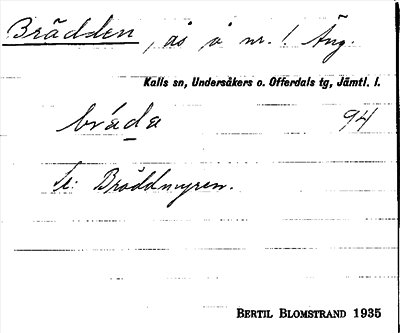 Brädden, ås å nr. 1 Äng.
Kalls sn, Undersåkers o. Offerdals tg, Jämtl. l.
bräda 94
Se: Bräddmyren.
BERTIL BLOMSTRAND 1935